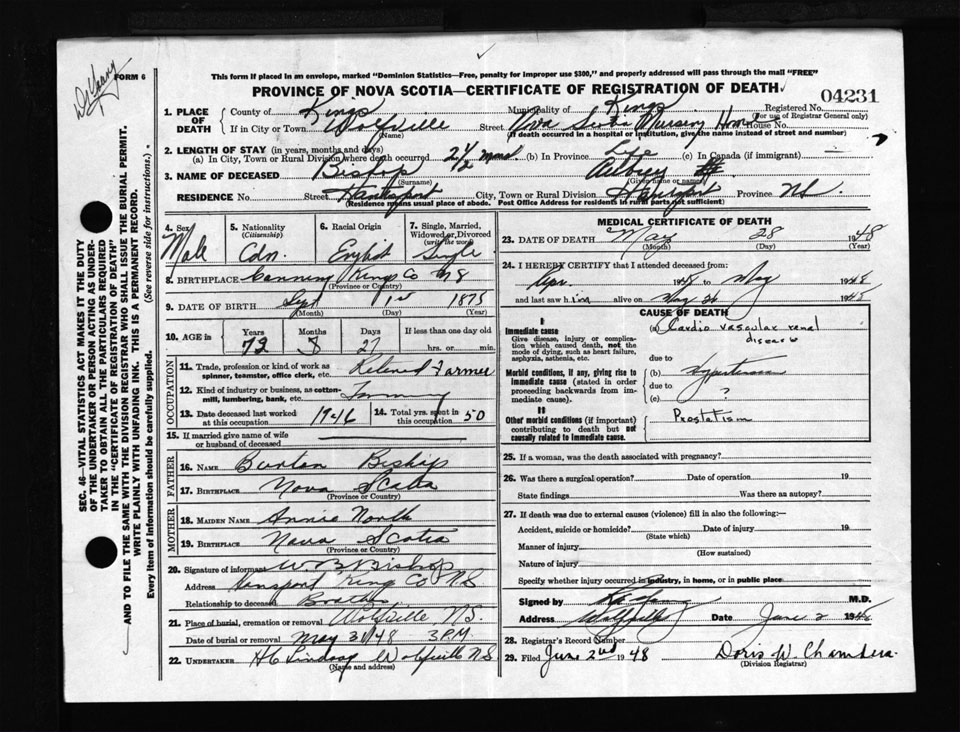 Dr Young
FORM 6
This form if placed in an envelope, marked "Dominion Statistics—Free, penalty for improper use $300," and properly addressed will pass through the mail "FREE"
PROVINCE OF NOVA SCOTIA—CERTIFICATE OF REGISTRATION OF DEATH
04231
1. PLACE OF DEATH
County of Kings Municipality of Kings Registered No.
(For use of Registrar General only)
If in City or Town Wolfville Street Nova Scotia Nursing Home House No.
(Name) (If death occurred in a hospital or institution, give the name instead of street and number)
2. LENGTH OF STAY (in years, months and days)
(a) In City, Town or Rural Division where death occurred 2 1/2 mons (b) In Province Life (c) In Canada (if immigrant)
3. NAME OF DECEASED Bishop
(Surname) (Given name or names)
RESIDENCE No. Street Hantsport City, Town or Rural Division Province NS.
(Residence means usual place of abode. Post Office Address for residents in rural parts not sufficient)
4. Sex Male
5. Nationality (Citizenship) Cdn.
6. Racial Origin English
7. Single, Married, Widowed or Divorced (write the word) Single
8. BIRTHPLACE Canning Kings Co NS
(Province or Country)
9. DATE OF BIRTH Sept 1st 1875
(Month) (Day) (Year)
10. AGE in Years Months Days If less than one day old
72 8 27 hrs. or min.
OCCUPATION
11. Trade, profession or kind of work as spinner, teamster, office clerk, etc. Retired Farmer
12. Kind of industry or business, as cotton-mill, lumbering, bank, etc. Farming
13. Date deceased last worked at this occupation 1946
14. Total yrs. spent in this occupation 50
15. If married give name of wife or husband of deceased
FATHER
16. NAME Burton Bishop
17. BIRTHPLACE Nova Scotia
(Province or Country)
MOTHER
18. MAIDEN NAME Annie North
19. BIRTHPLACE Nova Scotia
(Province or Country)
20. Signature of informant W B Bishop
Address Hansport King Co NS
Relationship to deceased Brother
21. Place of burial, cremation or removal Wolfville NS.
Date of burial or removal May 31/48 3 P.M.
22. UNDERTAKER HC Lindsay Wolfville NS
(Name and address)
MEDICAL CERTIFICATE OF DEATH
23. DATE OF DEATH May 28 1948
(Month) (Day) (Year)
24. I HEREBY CERTIFY that I attended deceased from:
Apr. 1948 to May 1948
and last saw him alive on May 26 1948
CAUSE OF DEATH
I
Immediate cause
Give disease, injury or complication which caused death, not the mode of dying, such as heart failure, asphyxia, asthenia, etc.
(a) Cardio vascular renal disease
due to
Morbid conditions, if any, giving rise to immediate cause (stated in order proceeding backwards from immediate cause).
(b) Hypertension
due to
(c) ?
II
Other morbid conditions (if important) contributing to death but not causally related to immediate cause.
Prostatism
25. If a woman, was the death associated with pregnancy?
26. Was there a surgical operation? Date of operation 19
State findings Was there an autopsy?
27. If death was due to external causes (violence) fill in also the following:—
Accident, suicide or homicide? Date of injury 19
(State which)
Manner of injury
(How sustained)
Nature of injury
Specify whether injury occurred in industry, in home, or in public place
Signed by M.D.
Address Wolfville Date June 2 1948
28. Registrar's Record Number
29. Filed June 2nd 1948 Doris W. Chambers.
(Division Registrar)
SEC. 46—VITAL STATISTICS ACT MAKES IT THE DUTY
OF THE UNDERTAKER OR PERSON ACTING AS UNDER-
TAKER TO OBTAIN ALL THE PARTICULARS REQUIRED
IN THE "CERTIFICATE OF REGISTRATION OF DEATH"
AND TO FILE THE SAME WITH THE DIVISION REGISTRAR WHO SHALL ISSUE THE BURIAL PERMIT.
WRITE PLAINLY WITH UNFADING INK. THIS IS A PERMANENT RECORD.
Every item of information should be carefully supplied. (See reverse side for instructions.)